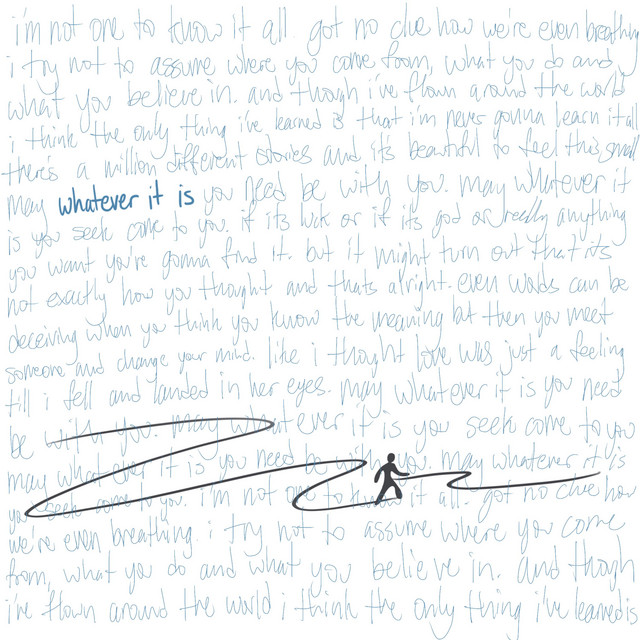 i'm not one to know it all. got no clue how we're even breathing
i try not to assume where you come from, what you do and
what you believe in. and though i've flown around the world
i think the only thing i've learned is that i'm never gonna learn it all
there's a million different stories and its beautiful to feel this small
may whatever it is you need be with you. may whatever it
is you seek come to you. if its luck or if its god or really anything
you want you're gonna find it. but it might turn out that its
not exactly how you thought and thats alright. even words can be
deceiving when you think you know the meaning but then you meet
someone and change your mind. like i thought love was just a feeling
till i fell and landed in her eyes. may whatever it is you need
be with you. may whatever it is you seek come to you
may whatever it is you need be with you. may whatever it is
you seek come to you. i'm not one to know it all. got no clue how
we're even breathing. i try not to assume where you come
from, what you do and what you believe in. and though
i've flown around the world i think the only thing i've learned is